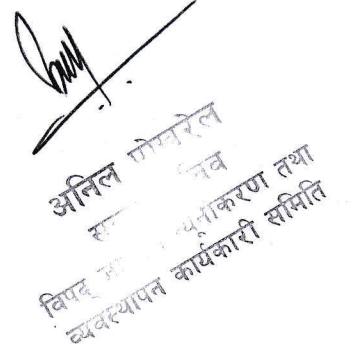 अनिल पोखरेल
विपद् न्यूनीकरण तथा
व्यवस्थापन कार्यकारी समिति